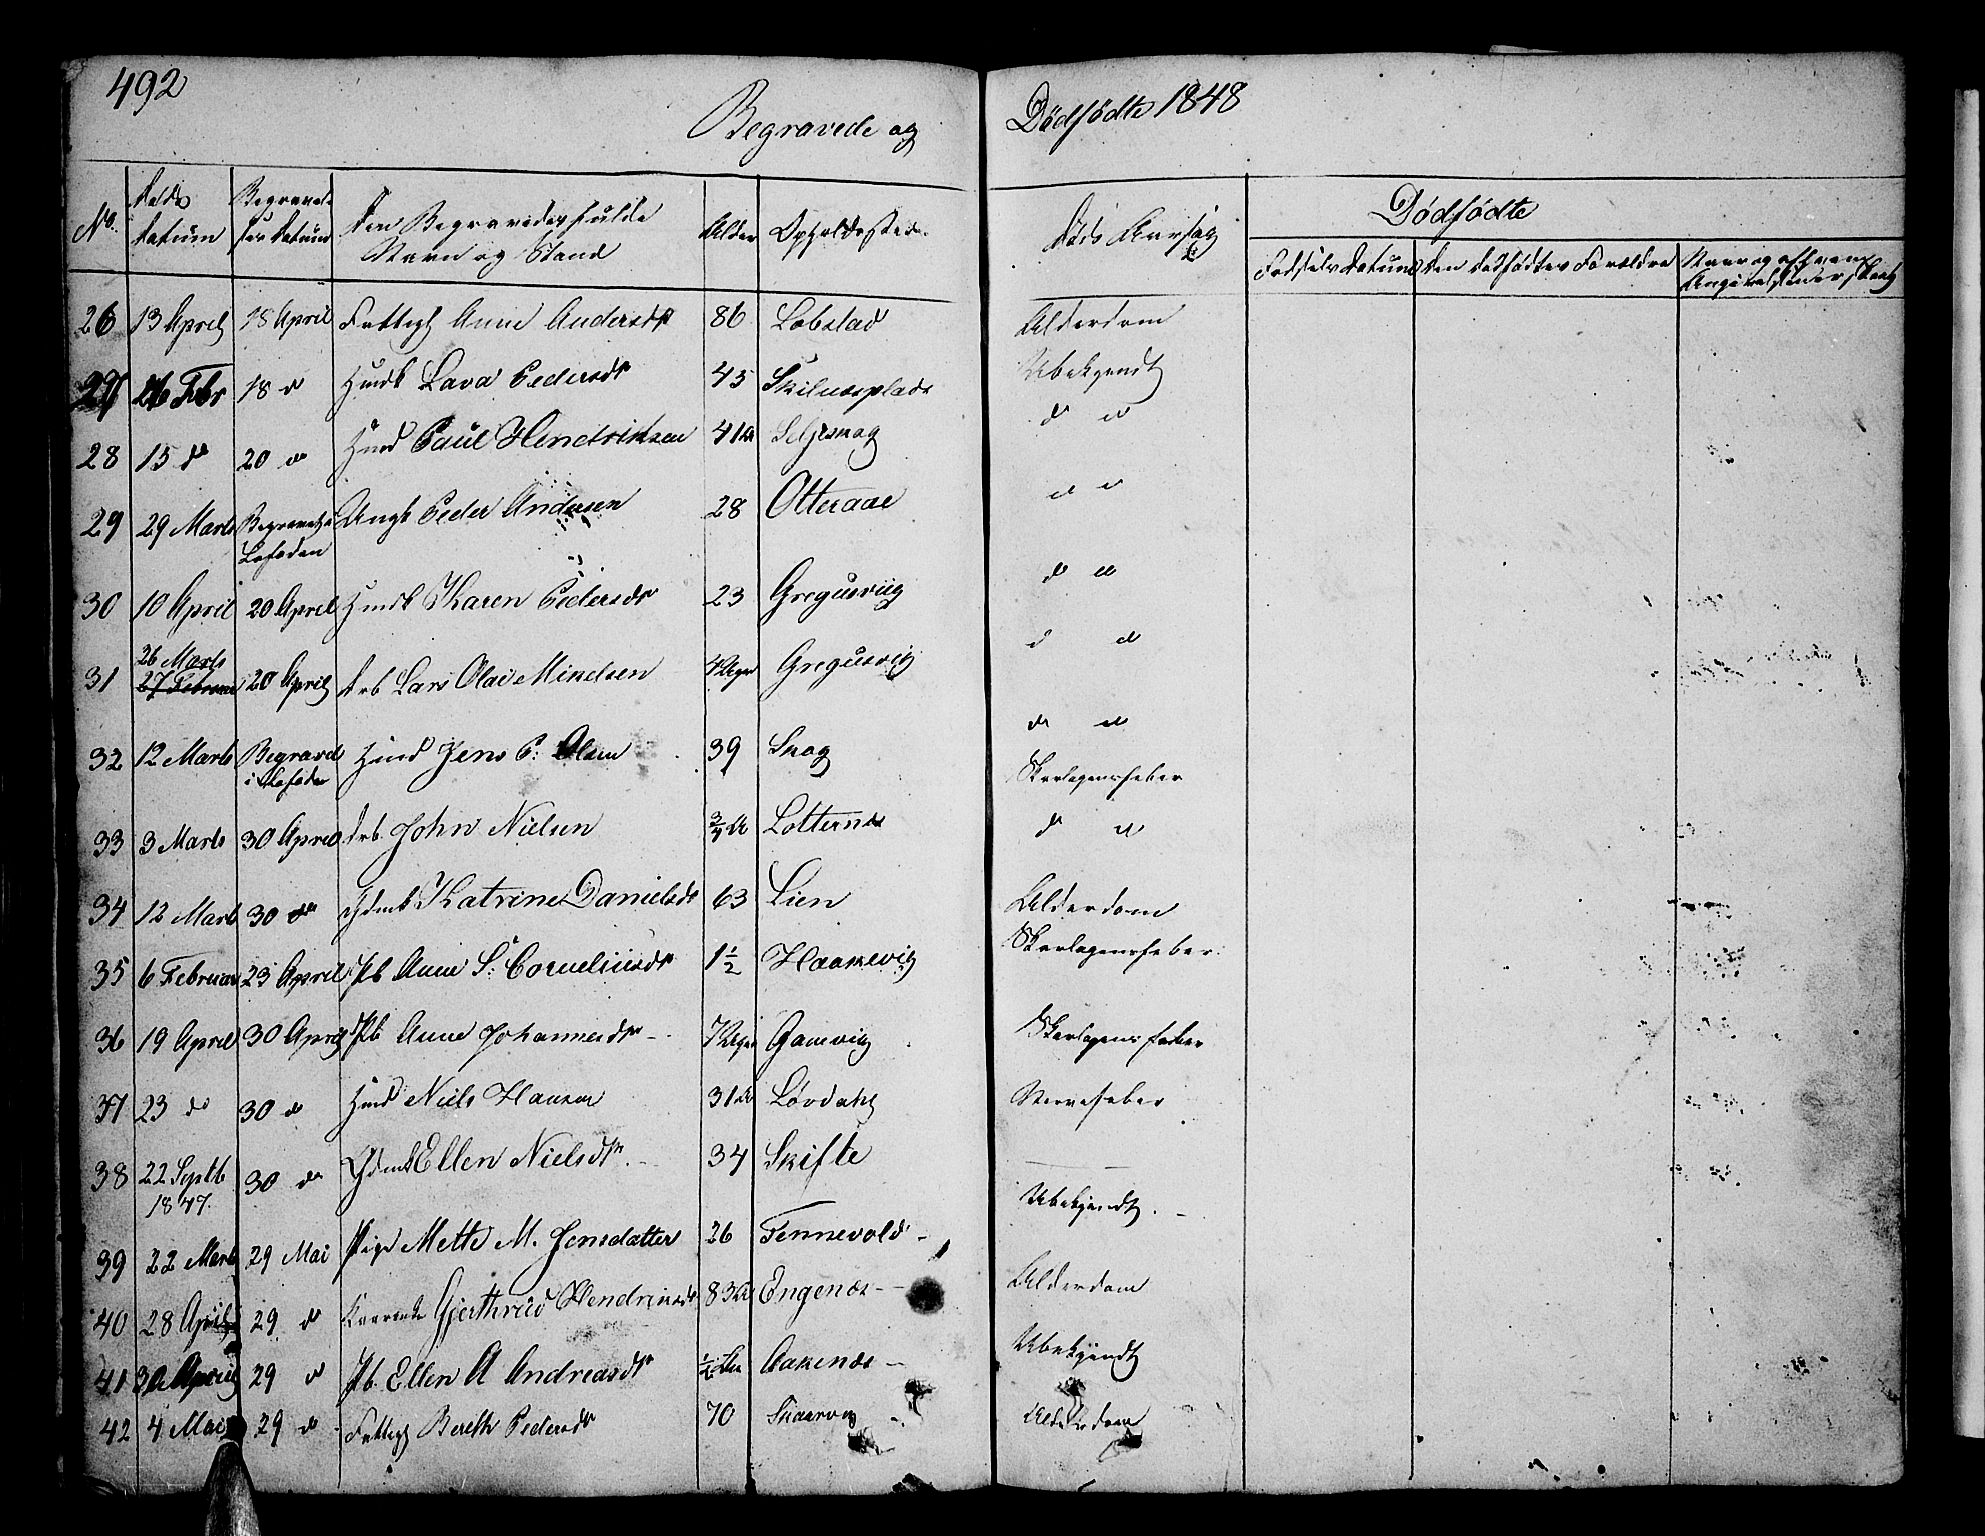 492
Begravede og Dødfødte 1848
No. Døds Datum Begravelses Datum Den Begravedes fulde Navn og Stand Alder Opholdssted Døds Aarsag Dødfødte
Fødsels Datum Den dødfødtes Forældre
26 13 April 18 April Fattigl Anne Andersdr 86 Lobstad Alderdom
27 26 Febr 18 d Hmdk Lava Pedersdr 45 Skilnesplads Ubekjendt
28 15 d 20 d Hmd Paul Hendriksen 41 Aar Seljesnag d d
29 29 Marts Begravet i Lofoden Ungk Peder Andersen 28 Otteraae d d
30 10 April 20 April Hmdk Karen Pedersdr 23 Gregusviig d d
31 26 Marts 27 Februar 20 April Drb Lars Olai Mikelsen 4 Uger Gregusvig d d
32 12 Marts Begravet i Lofoden Hmd Jens P. Olsen 39 Snag d d
33 3 Marts 30 April Drb. John Nielsen 3/4 A Lotternes Skarlagensfeber
34 12 Marts 30 d Gdmk Katrine Danielsdr 63 Lien Alderdom
35 6 Februar 23 April Pb Anne S: Corneliusdr 1 1/2 Haakevig Skarlagensfeber
36 19 April 30 April Pb Anne Johannesdr 7 Uger Gamvig Skarlagensfeber
37 23 d 30 d Hmd Niels Hansen 31 Aar Løvdahl Nervefeber
38 22 Septb 1847. 30 d Gdmk Ellen Nielsdr. 34 Skifte
39 22 Marts 29 Mai Pige Mette M. Jensdatter 26 Tennevold Ubekjendt.
40 28 April 29 d Gjerthrud Hendriksdr 83 Aar Engenæs Alderdom
41 30 April 29 d Pb. Ellen A Andreasdr 1/2 Aar Aakenæs Ubekjendt
42 4 Mai 29 d Fattigl Bereth Pedersdr 70 Snaarvig Alderdom